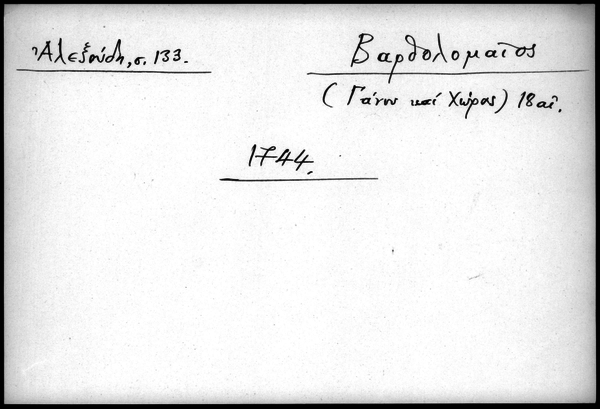 Ἀλεξούδη, σ. 133.
Βαρθολομαῖος
(Γάνου καί Χώρας) 18 αἰ.
1744.